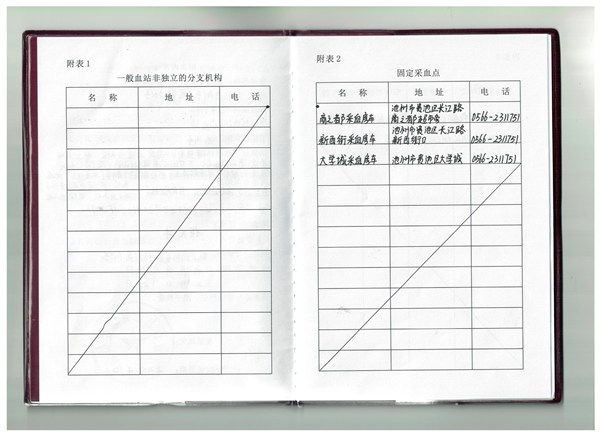 附表1
一般血站非独立的分支机构
名 称 地 址 电 话
附表2
固定采血点
名 称 地 址 电 话
池州市贵池区长江路
商之都采血房车 商之都超市旁 0566-2311751
池州市贵池区长江路
新西街采血房车 新西街口 0566-2311751
大学城采血房车 池州市贵池区大学城 0566-2311751